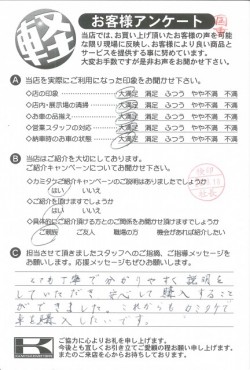 軽
お客様アンケート
当店では、お買い上げ頂いたお客様の声を可能
な限り現場に反映し、お客様により良い商品と
サービスを提供する事に努めています。
大変お手数ですが是非お声をお聞かせ下さい。
A 当店を実際にご利用になった印象をお聞かせ下さい。
◇店の印象 大満足 満足 ふつう やや不満 不満
◇店内・展示場の清掃 大満足 満足 ふつう やや不満 不満
◇お車の品揃え 大満足 満足 ふつう やや不満 不満
◇営業スタッフの対応 大満足 満足 ふつう やや不満 不満
◇納車時のお車の状態 大満足 満足 ふつう やや不満 不満
B 当店はご紹介を大切にしております。
ご紹介キャンペーンについてお聞かせ下さい。
◇カミタケご紹介キャンペーンのご説明はありましたでしょうか
はい いいえ
◇ご紹介をお聞きして頂けますでしょうか
はい いいえ
◇具体的にご紹介頂ける方とのご関係をお聞かせ頂けますでしょうか
ご親戚 ご友人 職場の方 機会があれば紹介したい
C 担当させて頂きましたスタッフへのご指摘、ご指導メッセージを
お願いします。応援メッセージもぜひお願いします。
いつも丁寧で分かりやすく説明を
していただき安心して購入すること
ができました。これからもカミタケで
車を購入したいです。
K
ご協力に心よりお礼を申し上げます。
今後とも宜しくお引き立てご愛顧の程お願い申し上げます。
またのご来店を心からお待ちしております。